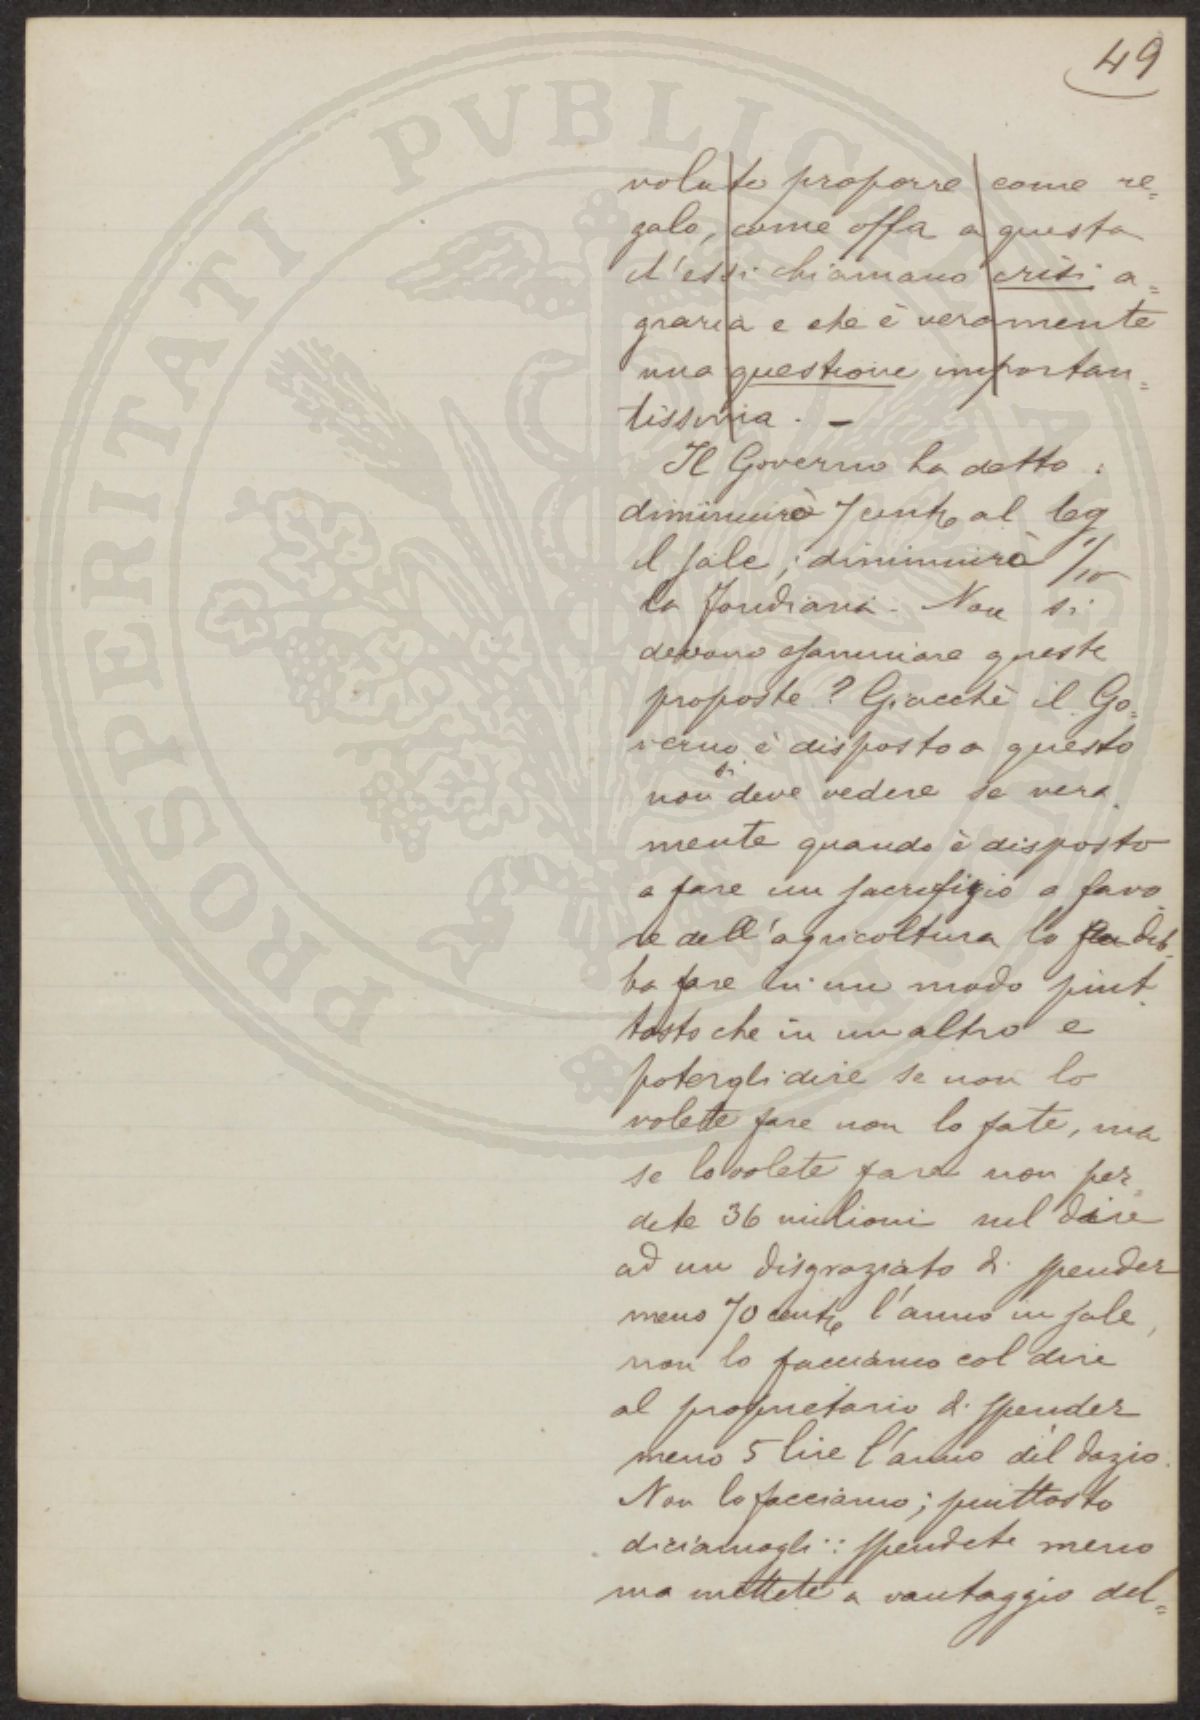 49
voluto proporre come re=
galo, come offa a questa
ch'essi chiamano crisi a=
graria e che è veramente
una questione importan=
tissima. –
Il Governo ha detto:
diminuirò 7 cent. al Kg
il sale; diminuirò 1/10
la fondiaria. Non si
devono esaminare queste
proposte? Giacchè il Go=
verno è disposto a questo
non si deve vedere se vera
mente quando è disposto
a fare un sacrifizio a favo
re dell'agricoltura lo deb.
ba fare in un modo piut
tosto che in un altro e
potergli dire se non lo
volete fare non lo fate, ma
se lo volete fare non per=
dete 36 milioni nel dire
ad un disgraziato di spender
meno 70 cent. l'anno in sale,
non lo facciamo col dire
al proprietario di spender
meno 5 lire l'anno del dazio.
Non lo facciamo; piuttosto
diciamogli: spendete meno
ma mettete a vantaggio del=
PROSPERITATI PVBLICAE